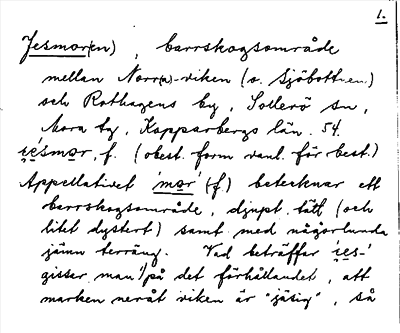 1.
Jesmor(en), barrskogsområde
mellan Norr(a)-viken (o. Sjöbottnen)
och Rothagens by, Sollerö sn,
Mora tg, Kopparbergs län. 54.
f. (obest. form vanl. för best.)
Appellativet 'mor' (f) betecknar ett
barrskogsområde, djupt, tätt (och
litet dystert) samt med någorlunda
jämn terräng. Vad beträffar
gissar man på det förhållandet, att
marken neråt viken är "jäsig", så